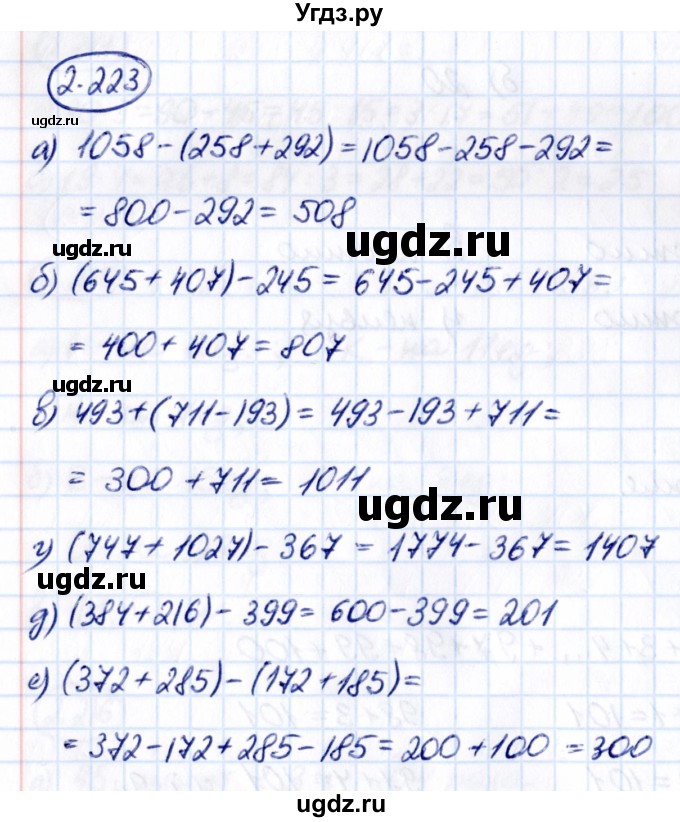 Угдз.ру
2.223
ugdz.ru
а) 1058-(258+292)=1058-258-292=
ugdz.ru
=800-292=508
ugdz.ru
б) (645+407)-245=645-245+407=
=400+407=807
ugdz.ru
в) 493+(711-193)=493-193+711=
=300+711=1011
ugdz.ru
г) (747+1027)-367=1774-367=1407
ugdz.ru
д) (384+216)-399=600-399=201
ugdz.ru
е) (372+285)-(172+185)=
=372-172+285-185=200+100=300
ugdz.ru
ugdz.ru